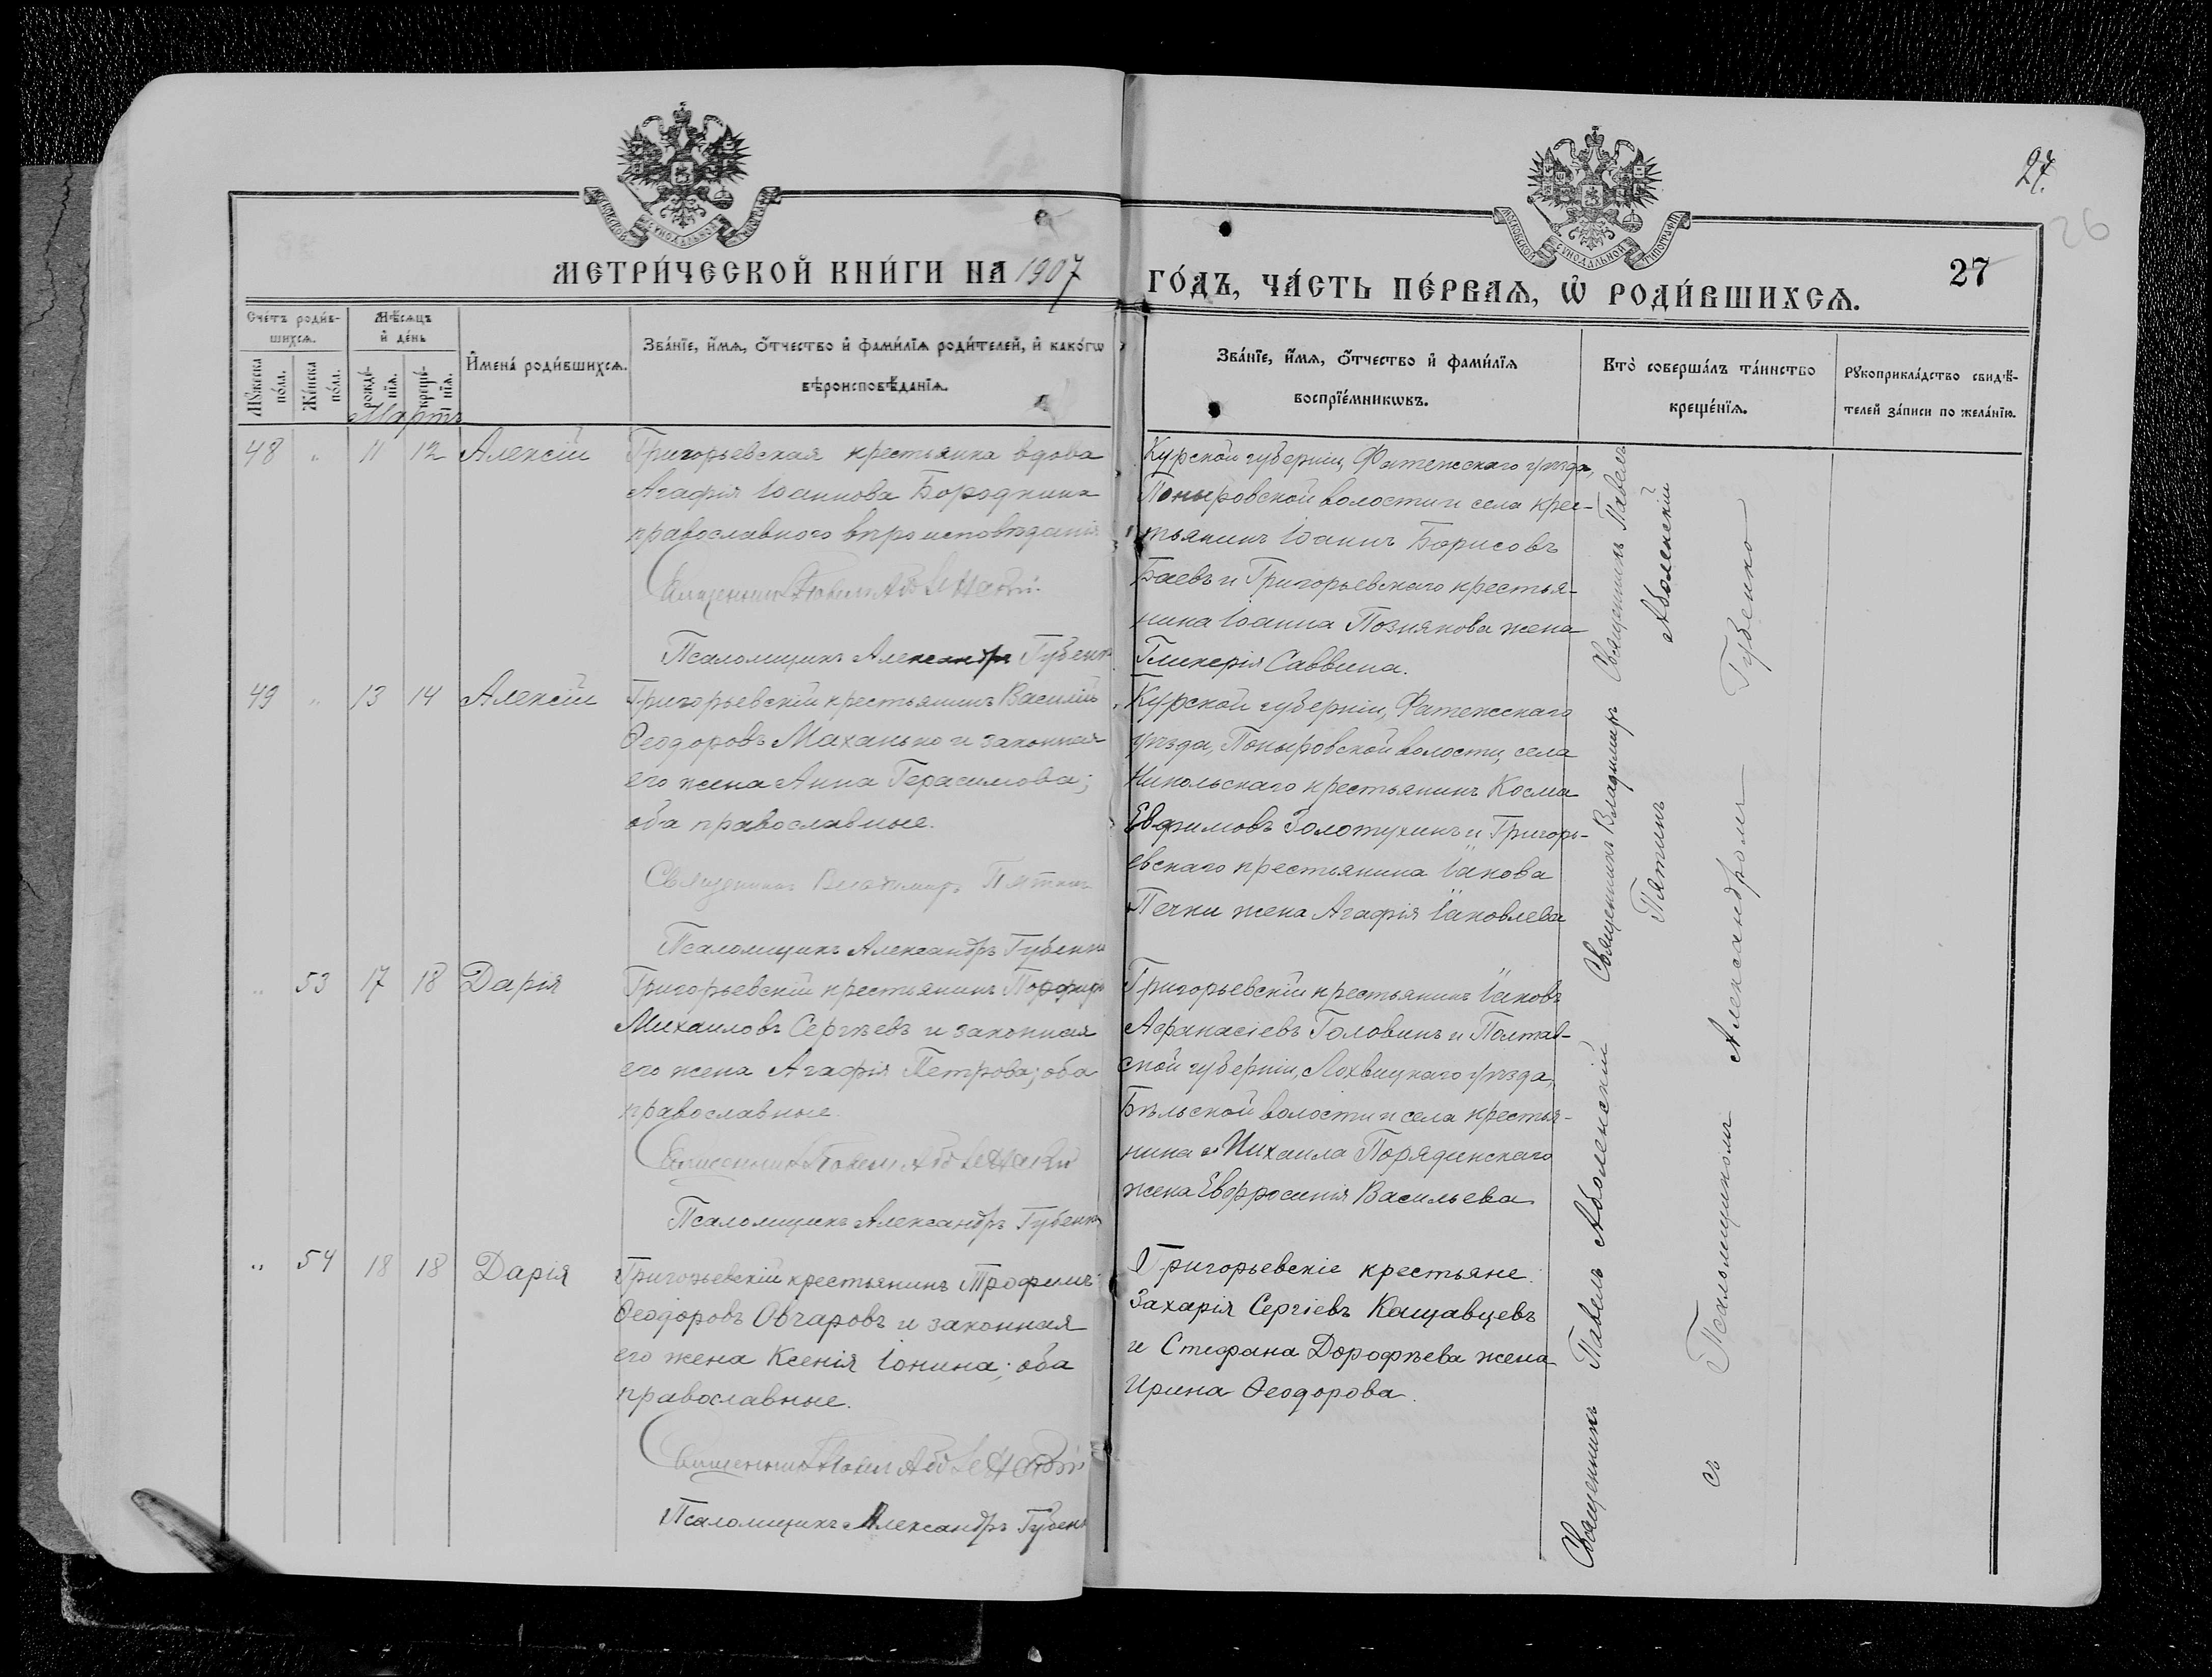 27.
26
МОСКОВСКОЙ СУНОДАЛЬНОЙ ТИПОГРАФІИ
МОСКОВСКОЙ СУНОДАЛЬНОЙ ТИПОГРАФІИ
МЕТРИ́ЧЕСКОЙ КНИ́ГИ НА 1907
ГО́ДЪ, ЧА́СТЬ ПЕ́РВАѦ, Ѡ РОДИ́ВШИХСѦ.
27
Сче́тъ роди́в-
шихсѧ.
Мꙋ́жеска по́ла.
Же́нска по́ла.
Мѣ́сѧцъ
и҆ де́нь
рожде́-
нїѧ.
креще́-
нїѧ.
Мартъ
И҆мена̀ роди́вшихсѧ.
Зва́нїе, и҆́мѧ, ѻ҆́тчество и҆ фами́лїѧ роди́телей, и҆ како́гѡ
вѣроисповѣ́данїѧ.
Зва́нїе, и҆́мѧ, ѻ҆́тчество и҆ фами́лїѧ
воспрїе́мникѡвъ.
Кто̀ соверша́лъ та́инство
креще́нїѧ.
Рꙋкоприкла́дство свидѣ́-
телей за́писи по жела́нїю.
48 „ 11 12 Алексій
Григорьевская крестьянка вдова
Агафія Іоаннова Бородкина
православного вѣроисповѣданія
Священникъ Павелъ Аболенскій.
Псаломщикъ Александръ Губенк
Курской губерніи, Фатежскаго уѣзда,
Поныровской волости и села крес-
тьянинъ Іоаннъ Борисовъ
Баевъ и Григорьевскаго крестья-
нина Іоанна Познякова жена
Гликерія Саввина.
49 „ 13 14 Алексій
Григорьевскій крестьянинъ Василій
Ѳеодоровъ Маханько и законная
его жена Анна Герасимова;
оба православные.
Священникъ Владимиръ Пятинъ
Псаломщикъ Александръ Губенко
Курской губерніи, Фатежскаго
уѣзда, Поныровской волости, села
Никольскаго крестьянинъ Косма
Евфимовъ Золотухинъ и Григорь-
евскаго крестьянина Іакова
Печки жена Агафія Іаковлева
„ 53 17 18 Дарія
Григорьевскій крестьянинъ Порфирій
Михаиловъ Сергѣевъ и законная
его жена Агафія Петрова; оба
православные.
Священникъ Павелъ Аболенскій
Псаломщикъ Александръ Губенко
Григорьевскій крестьянинъ Іаковъ
Афанасіевъ Головинъ и Полтав-
ской губерніи, Лохвицкаго уѣзда,
Бѣльской волости и села крестья-
нина Михаила Порядинскаго
жена Евфросинія Васильева
„ 54 18 18 Дарія
Григорьевскій крестьянинъ Трофимъ
Ѳеодоровъ Овчаровъ и законная
его жена Ксенія Іонина; оба
православные.
Священникъ Павелъ Аболенскій
Псаломщикъ Александръ Губенк
Григорьевскіе крестьяне:
Захарія Сергіевъ Кощавцевъ
и Стефана Дорофѣева жена
Ирина Ѳеодорова.
Священникъ Павелъ Аболенскій Священникъ Владимиръ Священникъ Павелъ
Пятинъ Аболенскій
съ Псаломщикомъ Александромъ Губенко